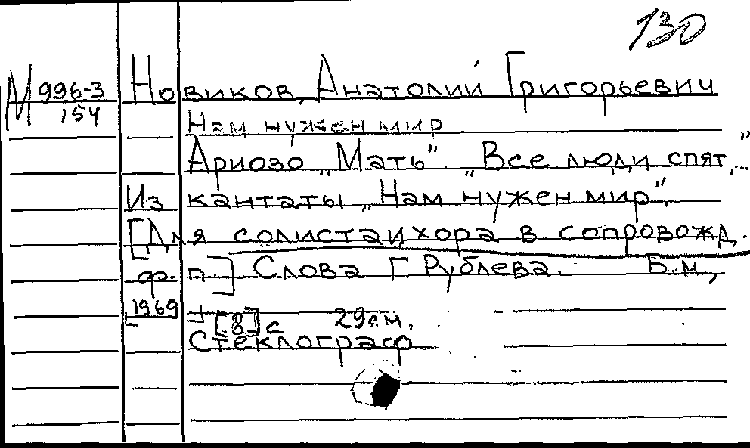 130
М 996-3 Новиков, Анатолий Григорьевич
154
Нам нужен мир
Ариозо „Мать". „Все люди спят..."
Из кантаты „Нам нужен мир".
[Для солиста и хора в сопровожд.
ф-п] Слова Г Рублева. Б.м,
[1969 [8] с 29см.
Стеклограф